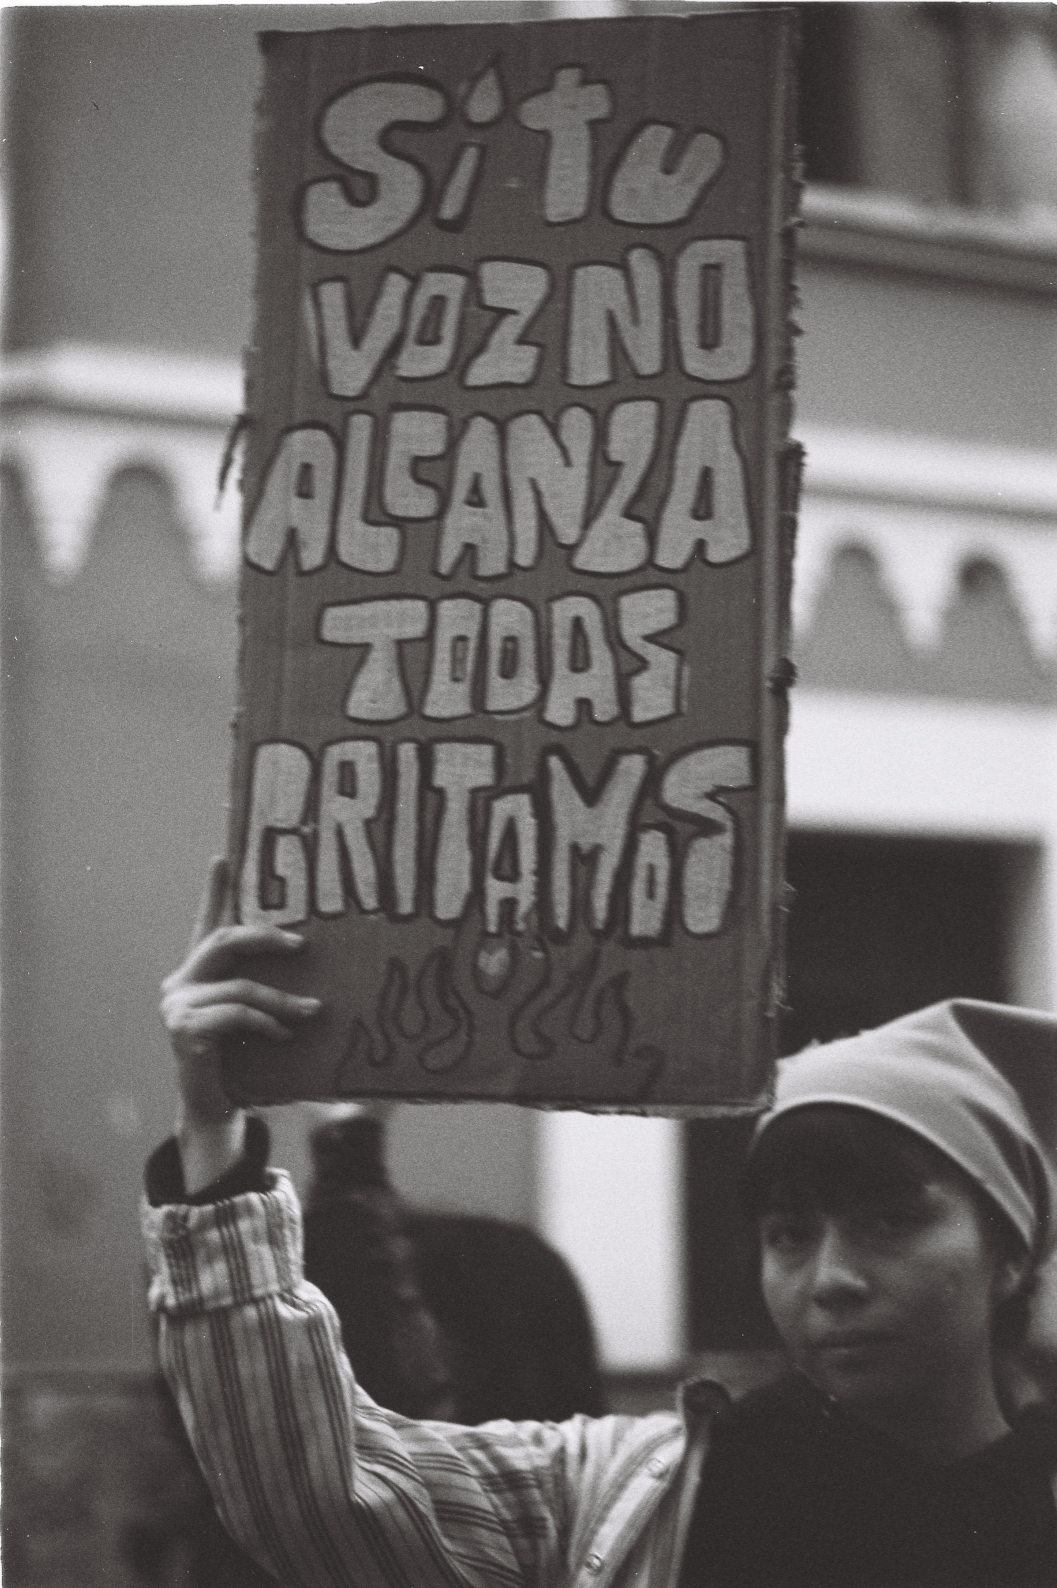 Si tu
VOZ NO
ALCANZA
TODAS
GRITAMOS